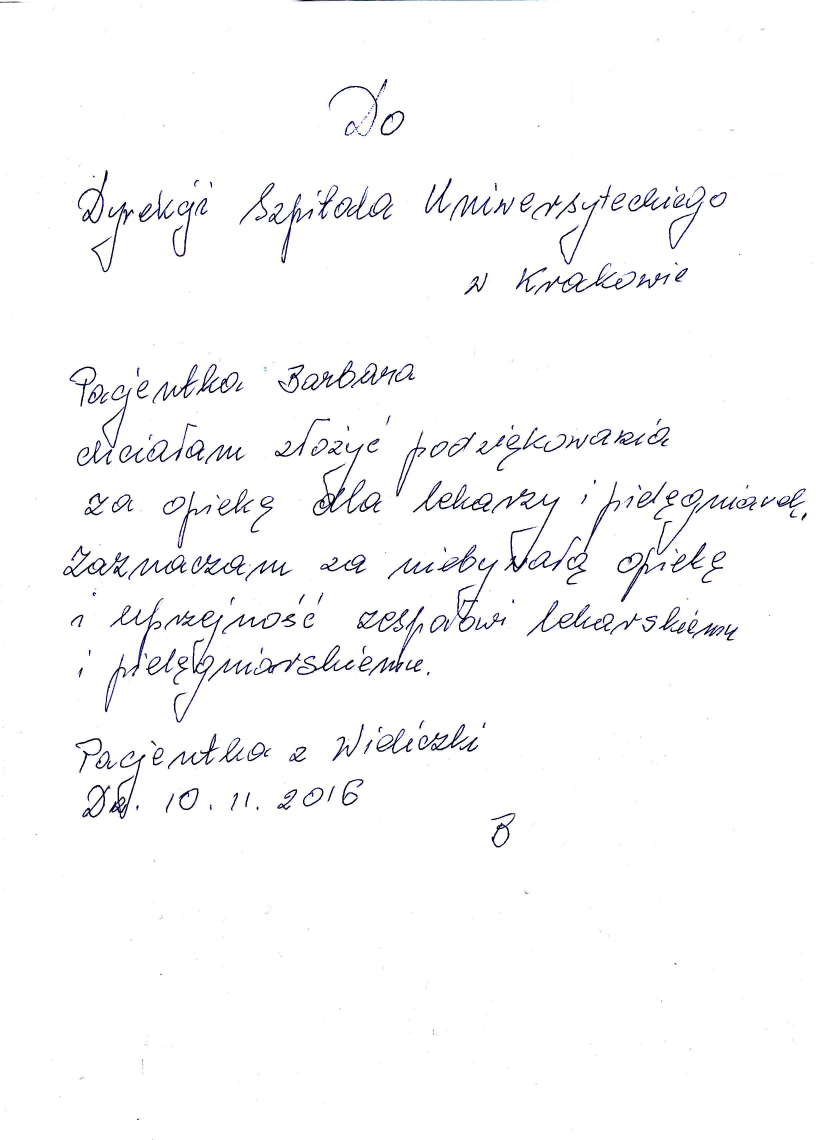 Do
Dyrekcji Szpitala Uniwersyteckiego
w Krakowie
Pacjentka Barbara
chciałam złożyć podziękowania
za opiekę dla lekarzy i pielęgniarek,
Zaznaczam za niebywałą opiekę
i uprzejność zespołowi lekarskiemu
i pielęgniarskiemu.
Pacjentka z Wieliczki
Dz. 10.11.2016
B